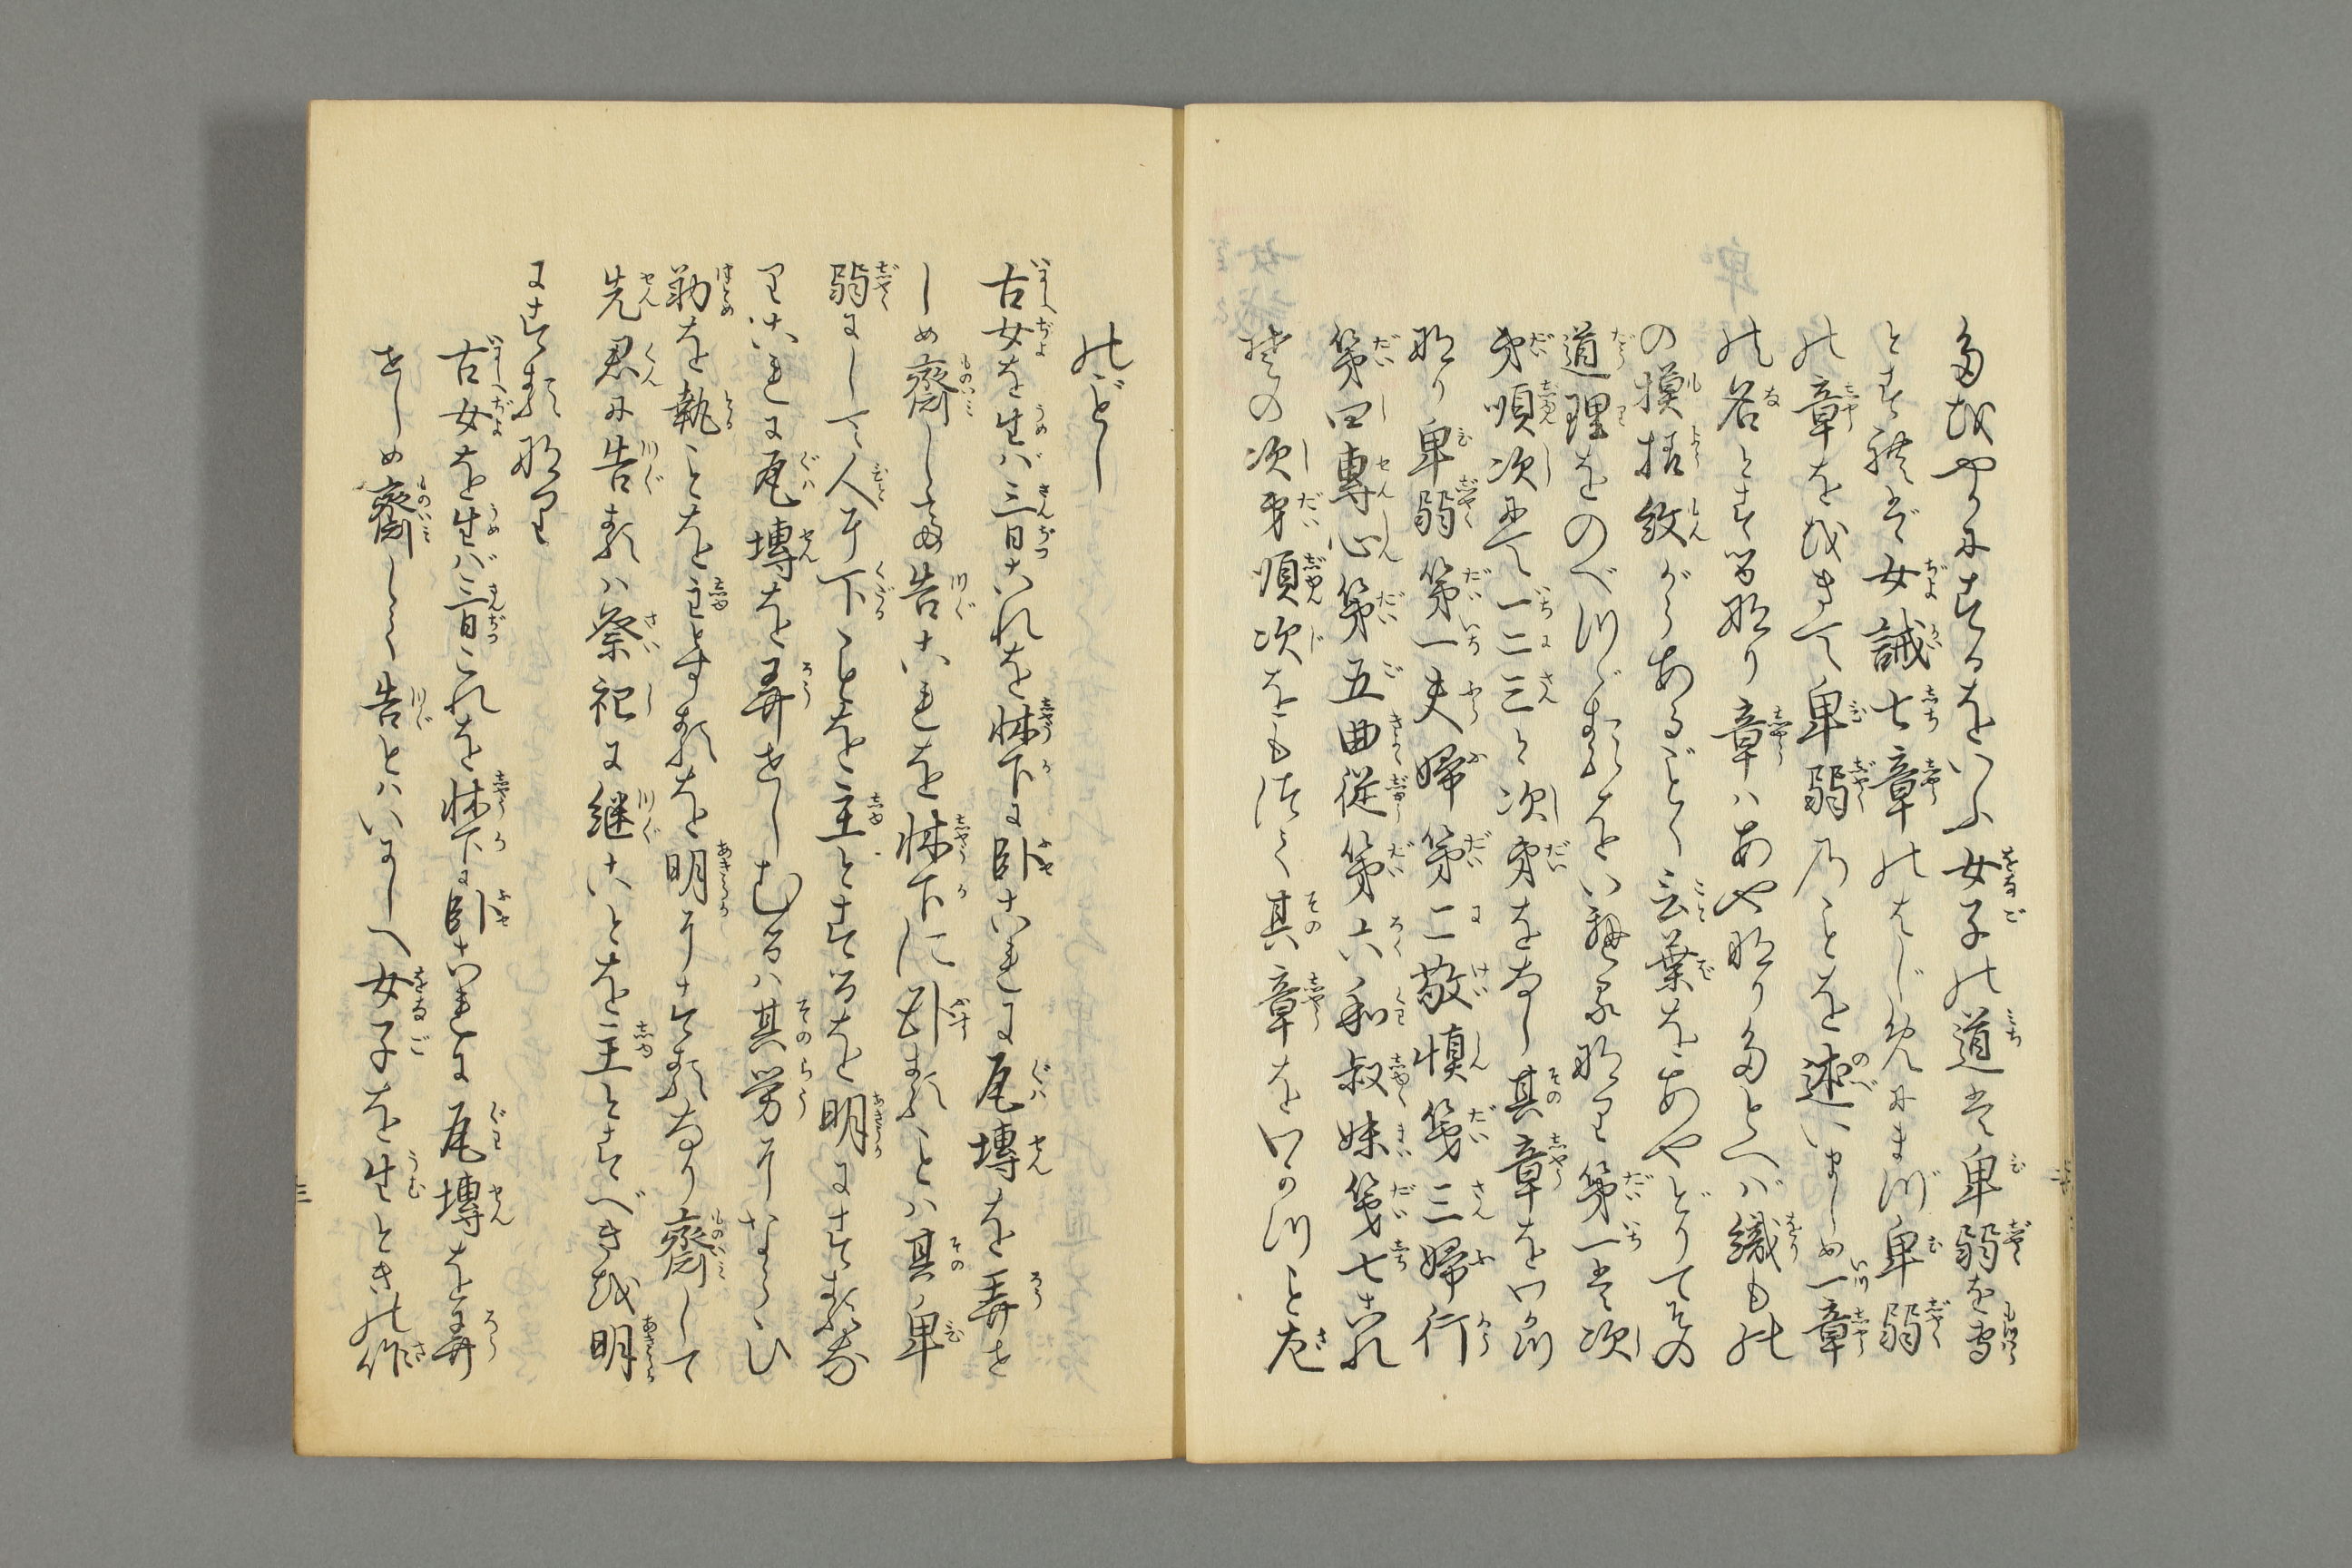 たをやかにするをいふ女子の道は卑弱を専
とす故に女誡七章のはじめにまづ卑弱
の章ををきて卑弱のことを述いましめ一章
の名とするなり章はあや也たとへば織もの
の摸様紋がらあるごとく言葉をあやどりてその
道理をのべつゞるをいへるなり第一は次
第順次にて一二三と次第をなし其章をわかつ
なり卑弱第一夫婦第二敬慎第三婦行
第四專心第五曲従第六和叔妹第七これ
その次第順次をもつて其章をわかつこと左
のごとし
古女を生ば三日これを牀下に臥これに瓦塼を弄せ
しめ齋して告これを牀下に臥することは其卑
弱にして人に下ことを主とするを明にする也
りこれに瓦塼を弄せしむるは其労にならひ
勤を執ことを主とするを明にするなり齋して
先君に告るは祭祀に継ことを主とすべきを明
にするなり
古女を生ば三日これを牀下に臥これに瓦塼を弄
せしめ齋して告とはいにしへ女子を生ときの作
三